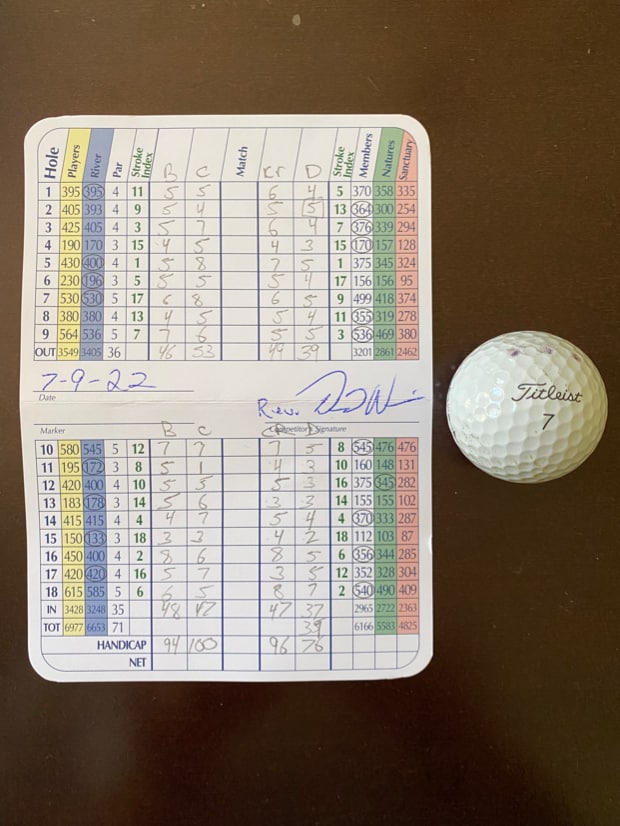 Hole Players River Par Stroke Index B C Match Kr D Stroke Index Members Natures Sanctuary
1 395 395 4 11 5 5 6 4 5 370 358 335
2 405 393 4 9 5 4 5 5 13 364 300 254
3 425 405 4 3 5 7 6 4 7 376 339 294
4 190 170 3 15 4 5 4 3 15 170 157 128
5 430 400 4 1 5 8 7 5 1 375 345 324
6 230 196 3 5 5 5 5 4 17 156 156 95
7 530 530 5 17 6 8 6 5 9 499 418 374
8 380 380 4 13 4 5 5 4 11 355 319 278
9 564 536 5 7 7 6 5 5 3 536 469 380
OUT 3549 3405 36 46 53 49 39 3201 2861 2462
7-9-22
Date Rev.
Marker Competitor's Signature
B C
10 580 545 5 12 7 7 7 5 8 545 476 476
11 195 172 3 8 5 1 4 3 10 160 148 131
12 420 400 4 10 5 5 5 3 16 375 345 282
13 183 178 3 14 5 6 3 3 14 155 155 102
14 415 415 4 4 4 7 5 4 4 370 333 287
15 150 133 3 18 3 3 4 2 18 112 103 87
16 450 400 4 2 8 6 8 5 6 356 344 285
17 420 420 4 16 5 7 3 5 12 352 328 304
18 615 585 5 6 6 5 8 7 2 540 490 409
IN 3428 3248 35 48 47 47 37 2965 2722 2363
TOT 6977 6653 71 39 6166 5583 4825
HANDICAP 94 100 96 76
NET
Titleist
7